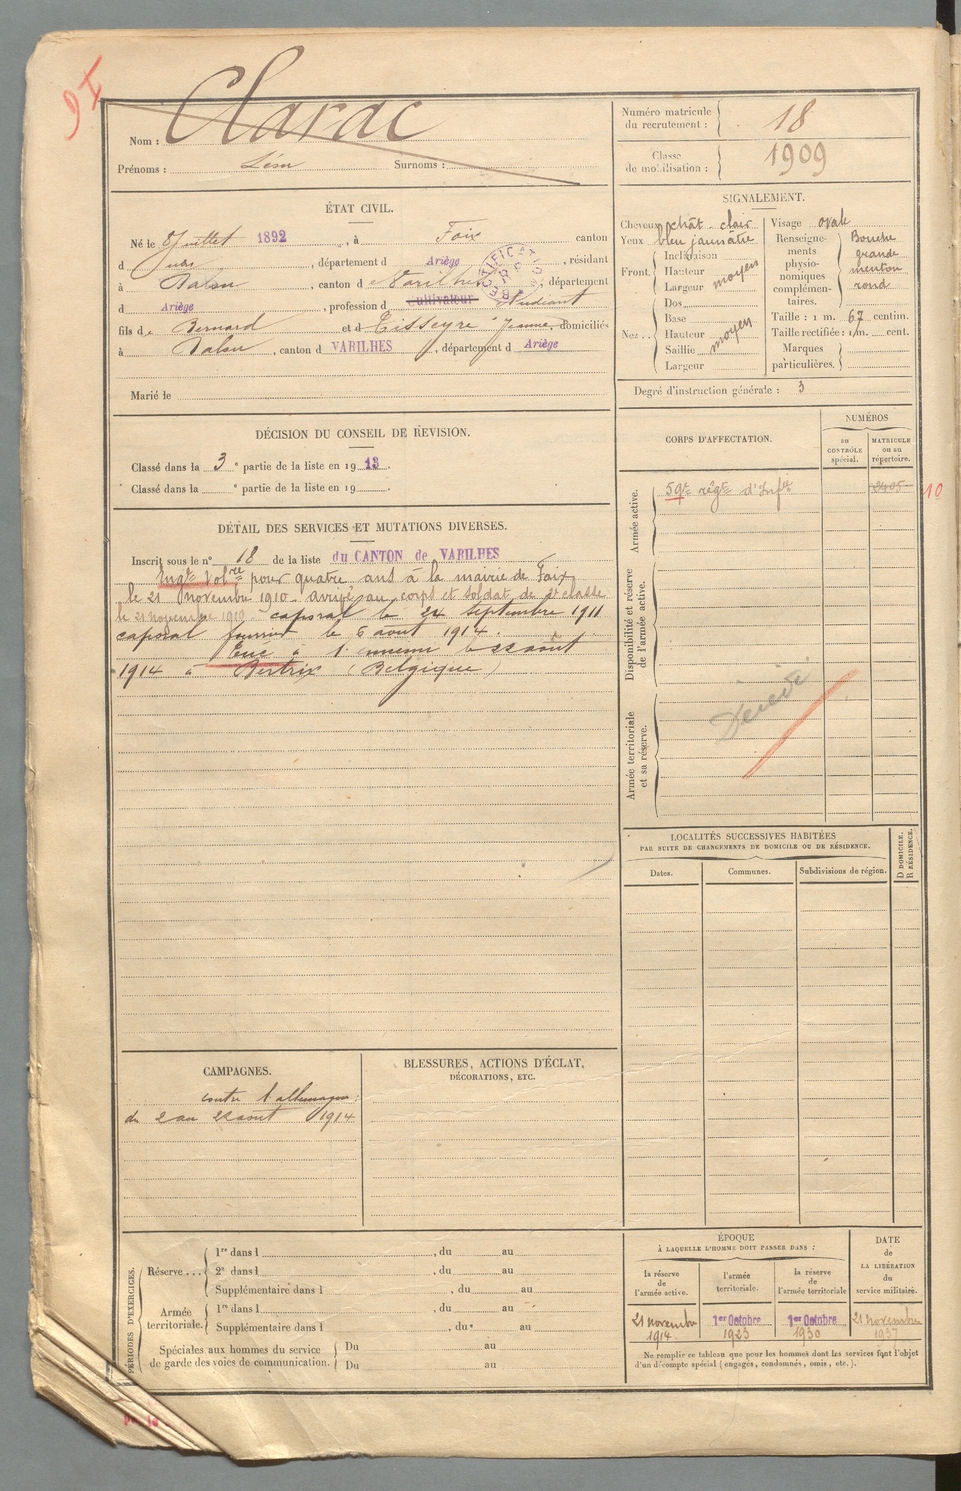 Nom : Clarac
Prénoms : Léon Surnoms :
ÉTAT CIVIL.
Né le 8 Juillet 1892, à Foix canton
d udit, département d Ariège, résidant
à Dalou, canton de Varilhes, département
d Ariège, profession d cultivateur étudiant
fils de Bernard et d Eisseyre Jeanne, domiciliés
à Dalou, canton d VARILHES, département d Ariège
Marié le
RECTIFICATION
DÉCISION DU CONSEIL DE REVISION.
Classé dans la 3e partie de la liste en 1913.
Classé dans la e partie de la liste en 19 .
DÉTAIL DES SERVICES ET MUTATIONS DIVERSES.
Inscrit sous le n° 18 de la liste du CANTON de VARILHES
Engt Volre pour quatre ans à la mairie de Foix
le 21 novembre 1910 - arrivé au corps et soldat de 2e classe
le 21 novembre 1910 - caporal le 24 septembre 1911
caporal fourrier le 6 aout 1914.
Tué à l'ennemi le 22 aout
1914 à Bertrix (Belgique)
CAMPAGNES.
contre l'allemagne:
du 2 au 22 aout 1914
BLESSURES, ACTIONS D'ÉCLAT,
DÉCORATIONS, ETC.
PÉRIODES D'EXERCICES.
Réserve
1re dans l , du au
2e dans l , du au
Supplémentaire dans l , du au
Armée territoriale.
1re dans l , du au
Supplémentaire dans l , du au
Spéciales aux hommes du service
de garde des voies de communication.
Du au
Du au
Numéro matricule
du recrutement : 18
Classe
de mobilisation : 1909
SIGNALEMENT.
Cheveux chât. clair
Yeux bleu jaunâtre
Front.
Inclinaison
Hauteur
Largeur
moyen
Nez
Dos
Base
Hauteur
Saillie
Largeur
moyen
Visage ovale
Renseignements
physionomiques
complémentaires.
Bouche
grande
menton
rond
Taille : 1 m. 67 centim.
Taille rectifiée : 1 m. cent.
Marques
particulières.
Degré d'instruction générale : 3
CORPS D'AFFECTATION.
NUMÉROS
au
CONTRÔLE
spécial.
MATRICULE
ou au
répertoire.
Armée active.
59e régt d'Infie
2405
10
Disponibilité et réserve
de l'armée active.
Armée territoriale
et sa réserve.
Décédé
LOCALITÉS SUCCESSIVES HABITÉES
PAR SUITE DE CHANGEMENTS DE DOMICILE OU DE RÉSIDENCE.
Dates.
Communes.
Subdivisions de région.
D DOMICILE.
R RÉSIDENCE.
ÉPOQUE
À LAQUELLE L'HOMME DOIT PASSER DANS :
la réserve
de
l'armée active.
l'armée
territoriale.
la réserve
de
l'armée territoriale
DATE
de
LA LIBÉRATION
du
service militaire.
21 novembre
1914.
1er Octobre
1923
1er Octobre
1930
21 novembre
1937
Ne remplir ce tableau que pour les hommes dont les services font l'objet
d'un décompte spécial (engagés, condamnés, omis, etc.).